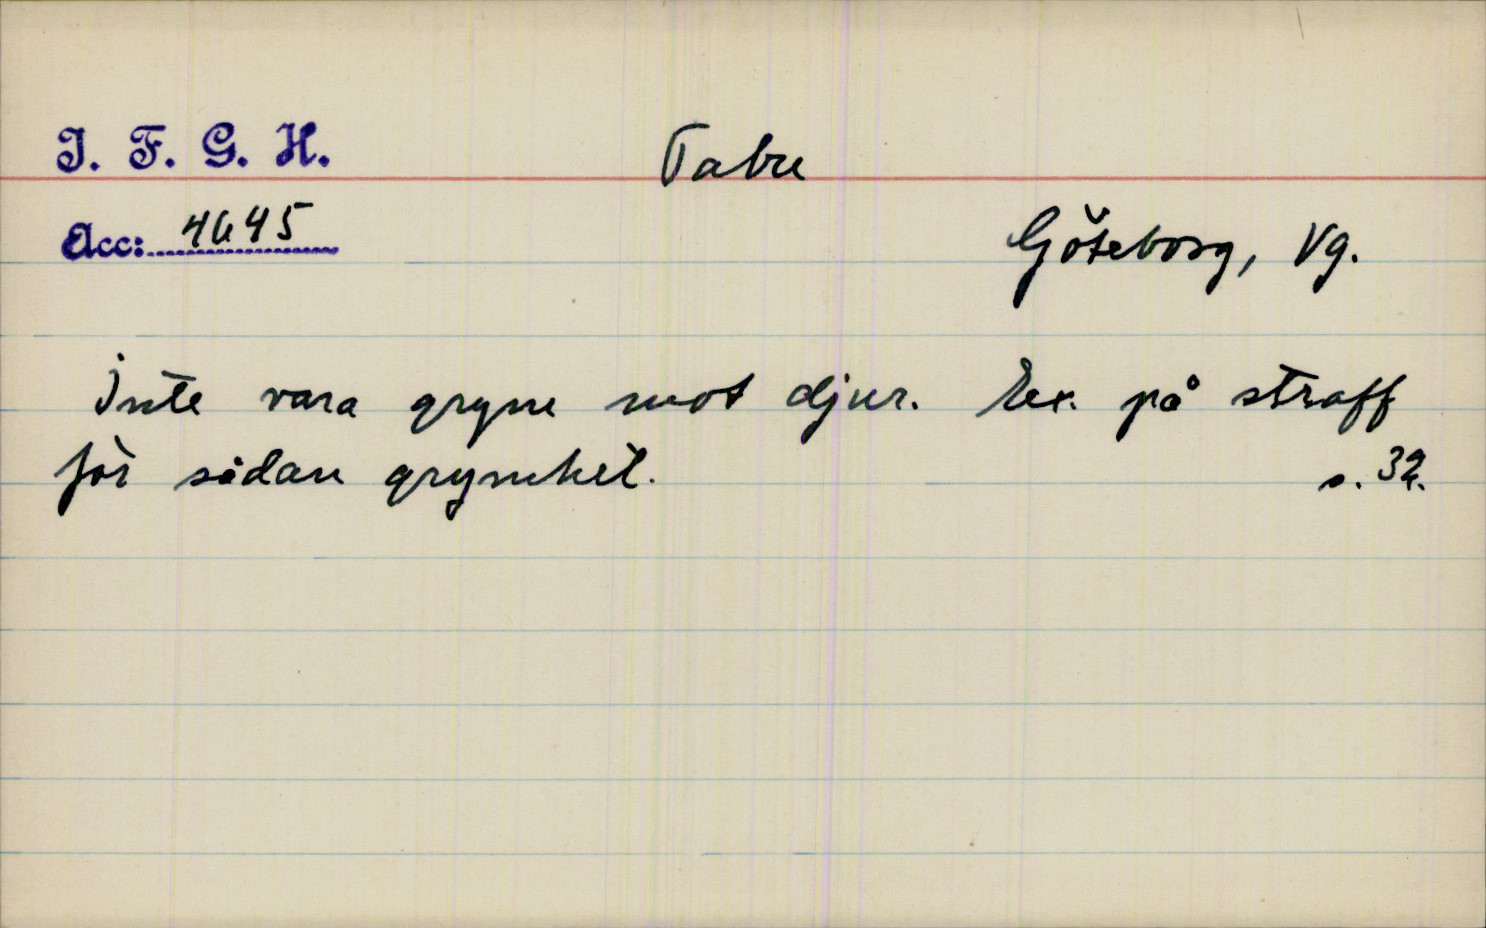 I. F. G. H.
Tabu
Acc: 4645
Göteborg, Vg.
Inte vara grym mot djur. Ex. på straff
för sådan grymhet. s. 32.